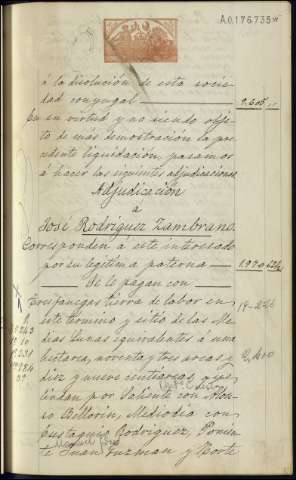 A0176735
á la disolución de esta socie-
dad conyugal
En su virtud y no siendo obje-
to de más demostración la pre-
cedente liquidación, pasamos
á hacer las siguientes adjudicaciones
Adjudicación
a
José Rodríguez Zambrano.
Corresponden á este interesado
por su legítima paterna
Se le pagan con
Tres fanegas tierra de labor en
este término y sitio de las Me-
dias Lunas equivalentes á una
hectarea, noventa y tres areas y
diez y nueve centiareas
lindan por Saliente con
Bellorin, Mediodía con
Eustaquio Rodríguez, Ponien-
te Juan Guzman y Norte